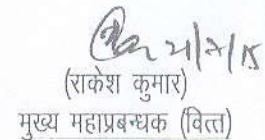 21/7/15
(राकेश कुमार)
मुख्य महाप्रबन्धक (वित्त)